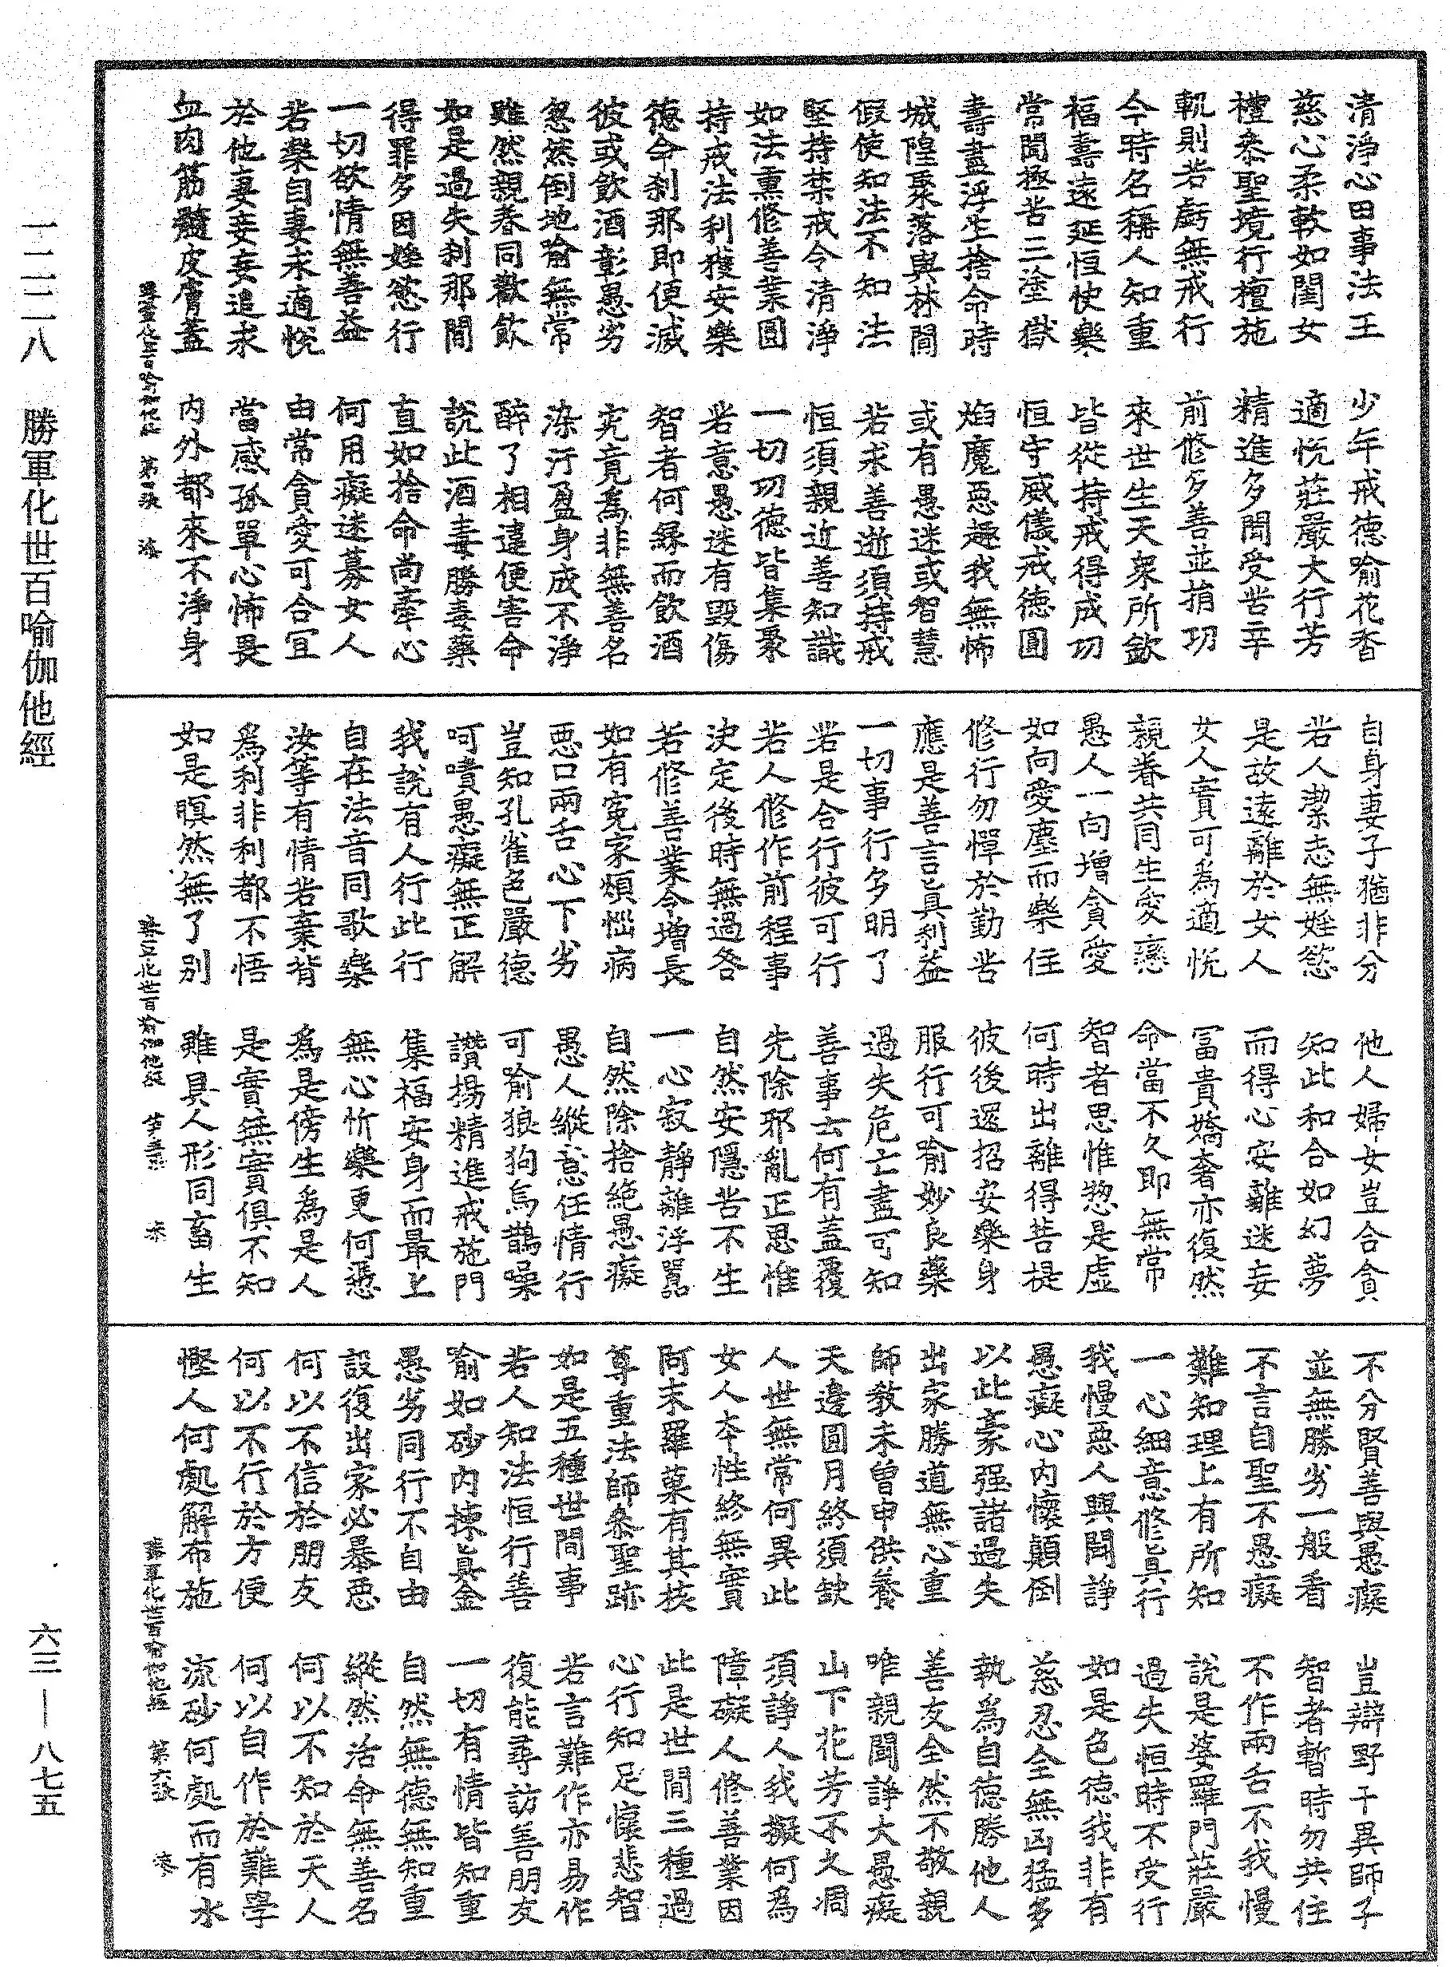 清淨心田事法王　少年戒德喻花香
慈心柔軟如閨女　適悅莊嚴大行芳
禮叅聖境行檀施　精進多聞受苦辛
軌則若虧無戒行　前修多善並捐功
今時名稱人知重　來世生天衆所欽
福壽遠延恒快樂　皆從持戒得成功
常聞極苦三塗獄　恒守威儀戒德圓
壽盡浮生捨命時　焰魔惡趣我無怖
城隍聚落與林間　或有愚迷或智慧
假使知法不知法　若求善逝須持戒
堅持禁戒令清淨　恒須親近善知識
如法熏修善業圓　一切功德皆集聚
持戒法利獲安樂　若意愚迷有毀傷
德命刹那即便滅　智者何緣而飲酒
彼或飲酒彰愚劣　究竟爲非無善名
忽然倒地喻無常　涂汙盈身成不淨
雖然親眷同歡飲　醉了相違便害命
如是過失刹那間　說此酒毒勝毒藥
得罪多因婬慾行　直如捨命尚牽心
一切欲情無善益　何用癡迷募女人
若樂自妻求適悅　由常貪愛可合宜
於他妻妾妄追求　當感孤單心怖畏
血肉筋髓皮膚蓋　內外都來不淨身
自身妻子猶非分　他人婦女豈合貪
若人潔志無婬慾　知此和合如幻夢
是故遠離於女人　而得心安離迷妄
女人實可爲適悅　冨貴嬌奢亦復然
親眷共同生愛戀　命當不久即無常
愚人一向增貪愛　智者思惟惣是虛
如向愛塵而樂住　何時出離得菩提
修行勿憚於勤苦　彼後還招安樂身
應是善言眞利益　服行可喻妙良藥
一切事行多明了　過失危亡盡可知
若是合行彼可行　善事云何有蓋覆
若人修作前程事　先除邪亂正思惟
決定後時無過咎　自然安隱苦不生
若修善業令增長　一心寂靜離浮囂
如有冤家煩惱病　自然除捨絶愚癡
惡口兩舌心下劣　愚人縱意任情行
豈知孔雀色嚴德　可喻狼狗烏鵲噪
呵嘖愚癡無正解　讚揚精進戒施門
我說有人行此行　集福安身而最上
自在法音同歌樂　無心忻樂更何憑
汝等有情若棄背　爲是傍生爲是人
爲利非利都不悟　是實無實俱不知
如是瞑然無了別　雖具人形同畜生
不分賢善與愚癡　豈辯野干異師子
並無勝劣一般看　智者暫時勿共住
不言自聖不愚癡　不作兩舌不我慢
難知理上有所知　說是婆羅門莊嚴
一心細意修眞行　過失恒時不受行
我慢惡人興鬪諍　如是色德我非有
愚癡心內懷顛倒　慈忍全無凶猛多
以此豪强諸過失　執爲自德勝他人
出家勝道無心重　善友全然不敬親
師教未曾申供養　唯親鬪諍大愚癡
天邊圓月終須缺　山下花芳不久凋
人世無常何異此　須諍人我擬何爲
女人本性終無實　障礙人修善業因
阿末羅菓有其核　此是世間三種過
尊重法師叅聖跡　心行知足懷悲智
如是五種世間事　若言難作亦易作
若人知法恒行善　復能尋訪善朋友
喻如砂內揀眞金　一切有情皆知重
愚劣同行不自由　自然無德無知重
設復出家必暴惡　縱然活命無善名
何以不信於朋友　何以不知於天人
何以不行於方便　何以自作於難學
慳人何處解布施　流砂何處而有水
一二二八　勝軍化世百喻伽他經
六三—八七五
勝軍化世百喻伽他經　第四張
勝軍化世百喻伽他經　第五張
勝軍化世百喻伽他經　第六張